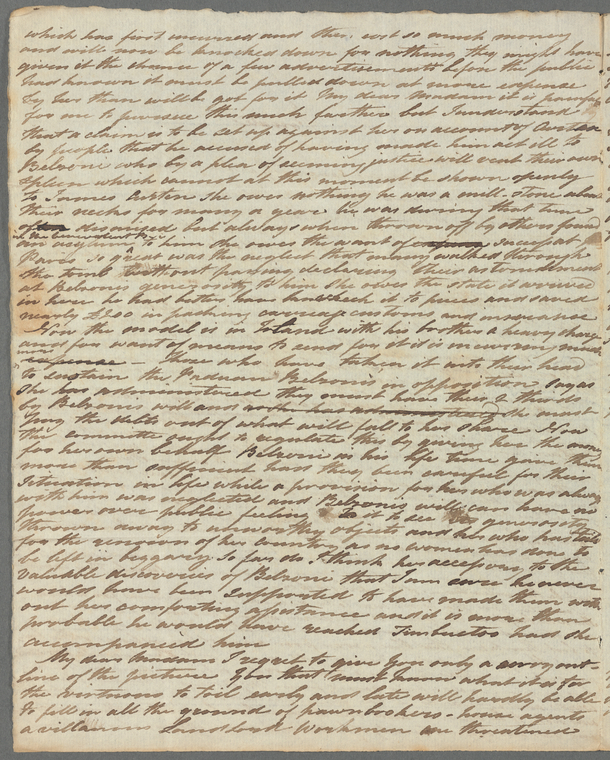 which has first incurred and then cost so much money
and will now be knocked down for nothing they might have
given it the chance of a few advertisements before the public
had known it must be pulled down at more expense
by her than will be got for it My dear Madam it is painful
for me to pursue this much further but I understand
that a claim is to be set up against her on account of Curtin
by people that he accused of having made him act ill to
Belzoni who by a plea of seeming justice will vent their own
spleen which cannot at this moment be shown openly
to James Curtin She owes nothing he was a mill stone about
their necks for many a year he was during that time
discarded but always when thrown off by others found
an asylum to him she owes the want of success at
Paris so great was the neglect that many walked through
the tomb without paying declaring their astonishment
at Belzonis generosity to him she owes the state it arrived
in here he had better have knocked it to pieces and saved
nearly £200 in packing carriage customs and insurance
Now the model is in with his brother a heavy charge
and for want of means to send for it it is incurring much
more expense Those who have taken it into their head
to sustain the Paduan Belzonis in opposition say as
she has administered they must have their 2 thirds
by Belzonis will and she must
pay the debts out of what will fall to her share Now
the committee ought to regulate this by giving her the money
for her own behalf Belzoni in his life time gave them
more than sufficient had they been careful for their
situation in life while a provision for her who was always
with him was neglected and Belzonis will can have no
power over public feeling to see his generosity
thrown away to unworthy objects and her who has toiled
for the renown of her country as no woman has done to
be left in beggary So far do I think her accessary to the
valuable discoveries of Belzoni that I am sure he never
would have been supported to have made them with
out her comforting assistance and it is more than
probable he would have reached Timbuctoo had she
accompanied him
My dear Madam I regret to give you only a sorry out-
line of the picture You that must know what it is for
the virtuous to toil early and late will hardly be able
to fill in all the ground of pawnbrokers - house agents
a villainous Landlord Workmen are threatened